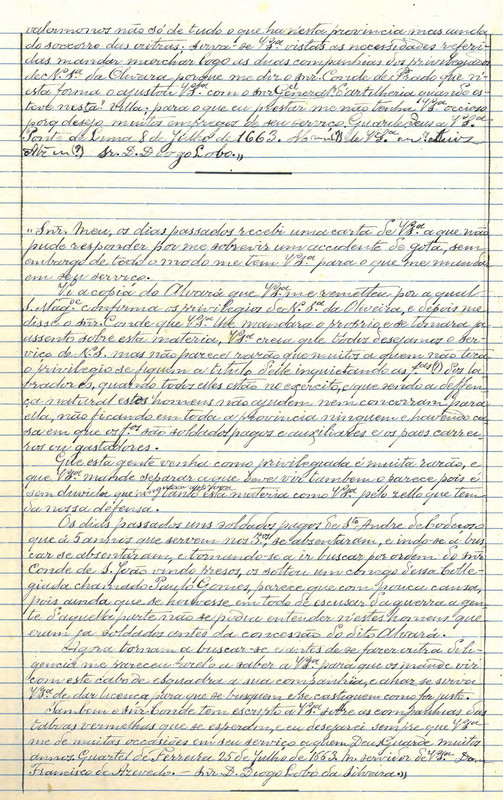 valermonos não só de tudo o que ha nesta provincia mas ainda
do soccorro das outras; sirva-se V.S.ª vistas as necessidades referi-
das mandar marchar logo as duas companhias dos privilegiados
de N.ª S.ra da Oliveira, porque me diz o snr. Conde de Prado que n'es-
ta forma o ajustou V.S.ª com o snr. General d'artilheria quando es-
teve nesta villa; para o que eu prestar me não tenha V.S.ª ocioso
porq desejo muitos empregos de seu serviço. Guarde Deus a V.S.ª
Ponte de Lima 8 de Julho de 1663. de V.S.ª
Snr. D. Diogo Lobo.,,
,,Snr. Meu, os dias passados recebi uma carta de V.S.ª a que não
pude responder por me sobrevir um accidente de gota, sem
embargo de todo o modo me tem V.S.ª para o que me mandar
em seu serviço.
Vi a copia do Alvará que V.S.ª me remetteu por a qual
S. Mag.de confirma os privilegios de N.ª S.ra da Oliveira, e depois me
disse o snr. Conde que V.S.ª lhe mandara o proprio e se tomara
assento sobre esta materia, V.S.ª creia que todos desejamos o ser-
viço de N.S. mas não parece razão que muitos a quem não toca
o privilegio se fiquem a titulo delle inquietando as (?) dos la-
bradores, quando todos elles estão no exército, e que sendo a deffen-
ça natural estes homens não ajudem nem concorram para
ella, não ficando em toda a provincia ninguem e havendo ca-
sa em que os fos são soldados pagos e auxiliares e os paes carrei-
ros ou gastadores.
Que esta gente venha como privilegiada é muita razão, e
que V.S.ª mande separar a que deve vir tambem o parece pois é
sem duvida que tanto esta materia como V.S.ª pelo zello que tem
da nossa defensa.
Os dias passados uns soldados pagos de S.to André de Codecoso
que à 5 annos que servem nos se absentaram, e indo-se à bus-
car se absentaram, e tornando-se a ir buscar por ordem do snr
Conde de S. João vindo presos, os soltou um conego dessa Colle-
giada chamado Paulo Gomes, parece que com pouca causa,
pois ainda que se houvesse em todo de escusar da guerra a gen-
te d'aquella parte não se podia entender n'estes homens que
eram já soldados antes da concessão do dito Alvará.
Agora tornam a buscar-se e antes de se fazer outra deli-
gencia me pareceu fazel-o a saber a V.S.ª para que os mande vir
com este cabo de esquadra à sua companhia, e a não se sirva
V.S.ª de dar licença para que se busquem e se castiguem como for justo.
Tambem o snr. Conde tem escripto a V.S.ª sobre as companhias das
cabras vermelhas que se esperam, e eu desejarei sempre que V.S.ª
me de muitas occasiões em seu serviço a quem Deus Guarde muitos
annos. Quartel de Ferreira 25 de julho de 1663. Servidor de V.S.ª Dom
Francisco de Azevedo. — Snr. D. Diogo Lobo da Silveira.,,